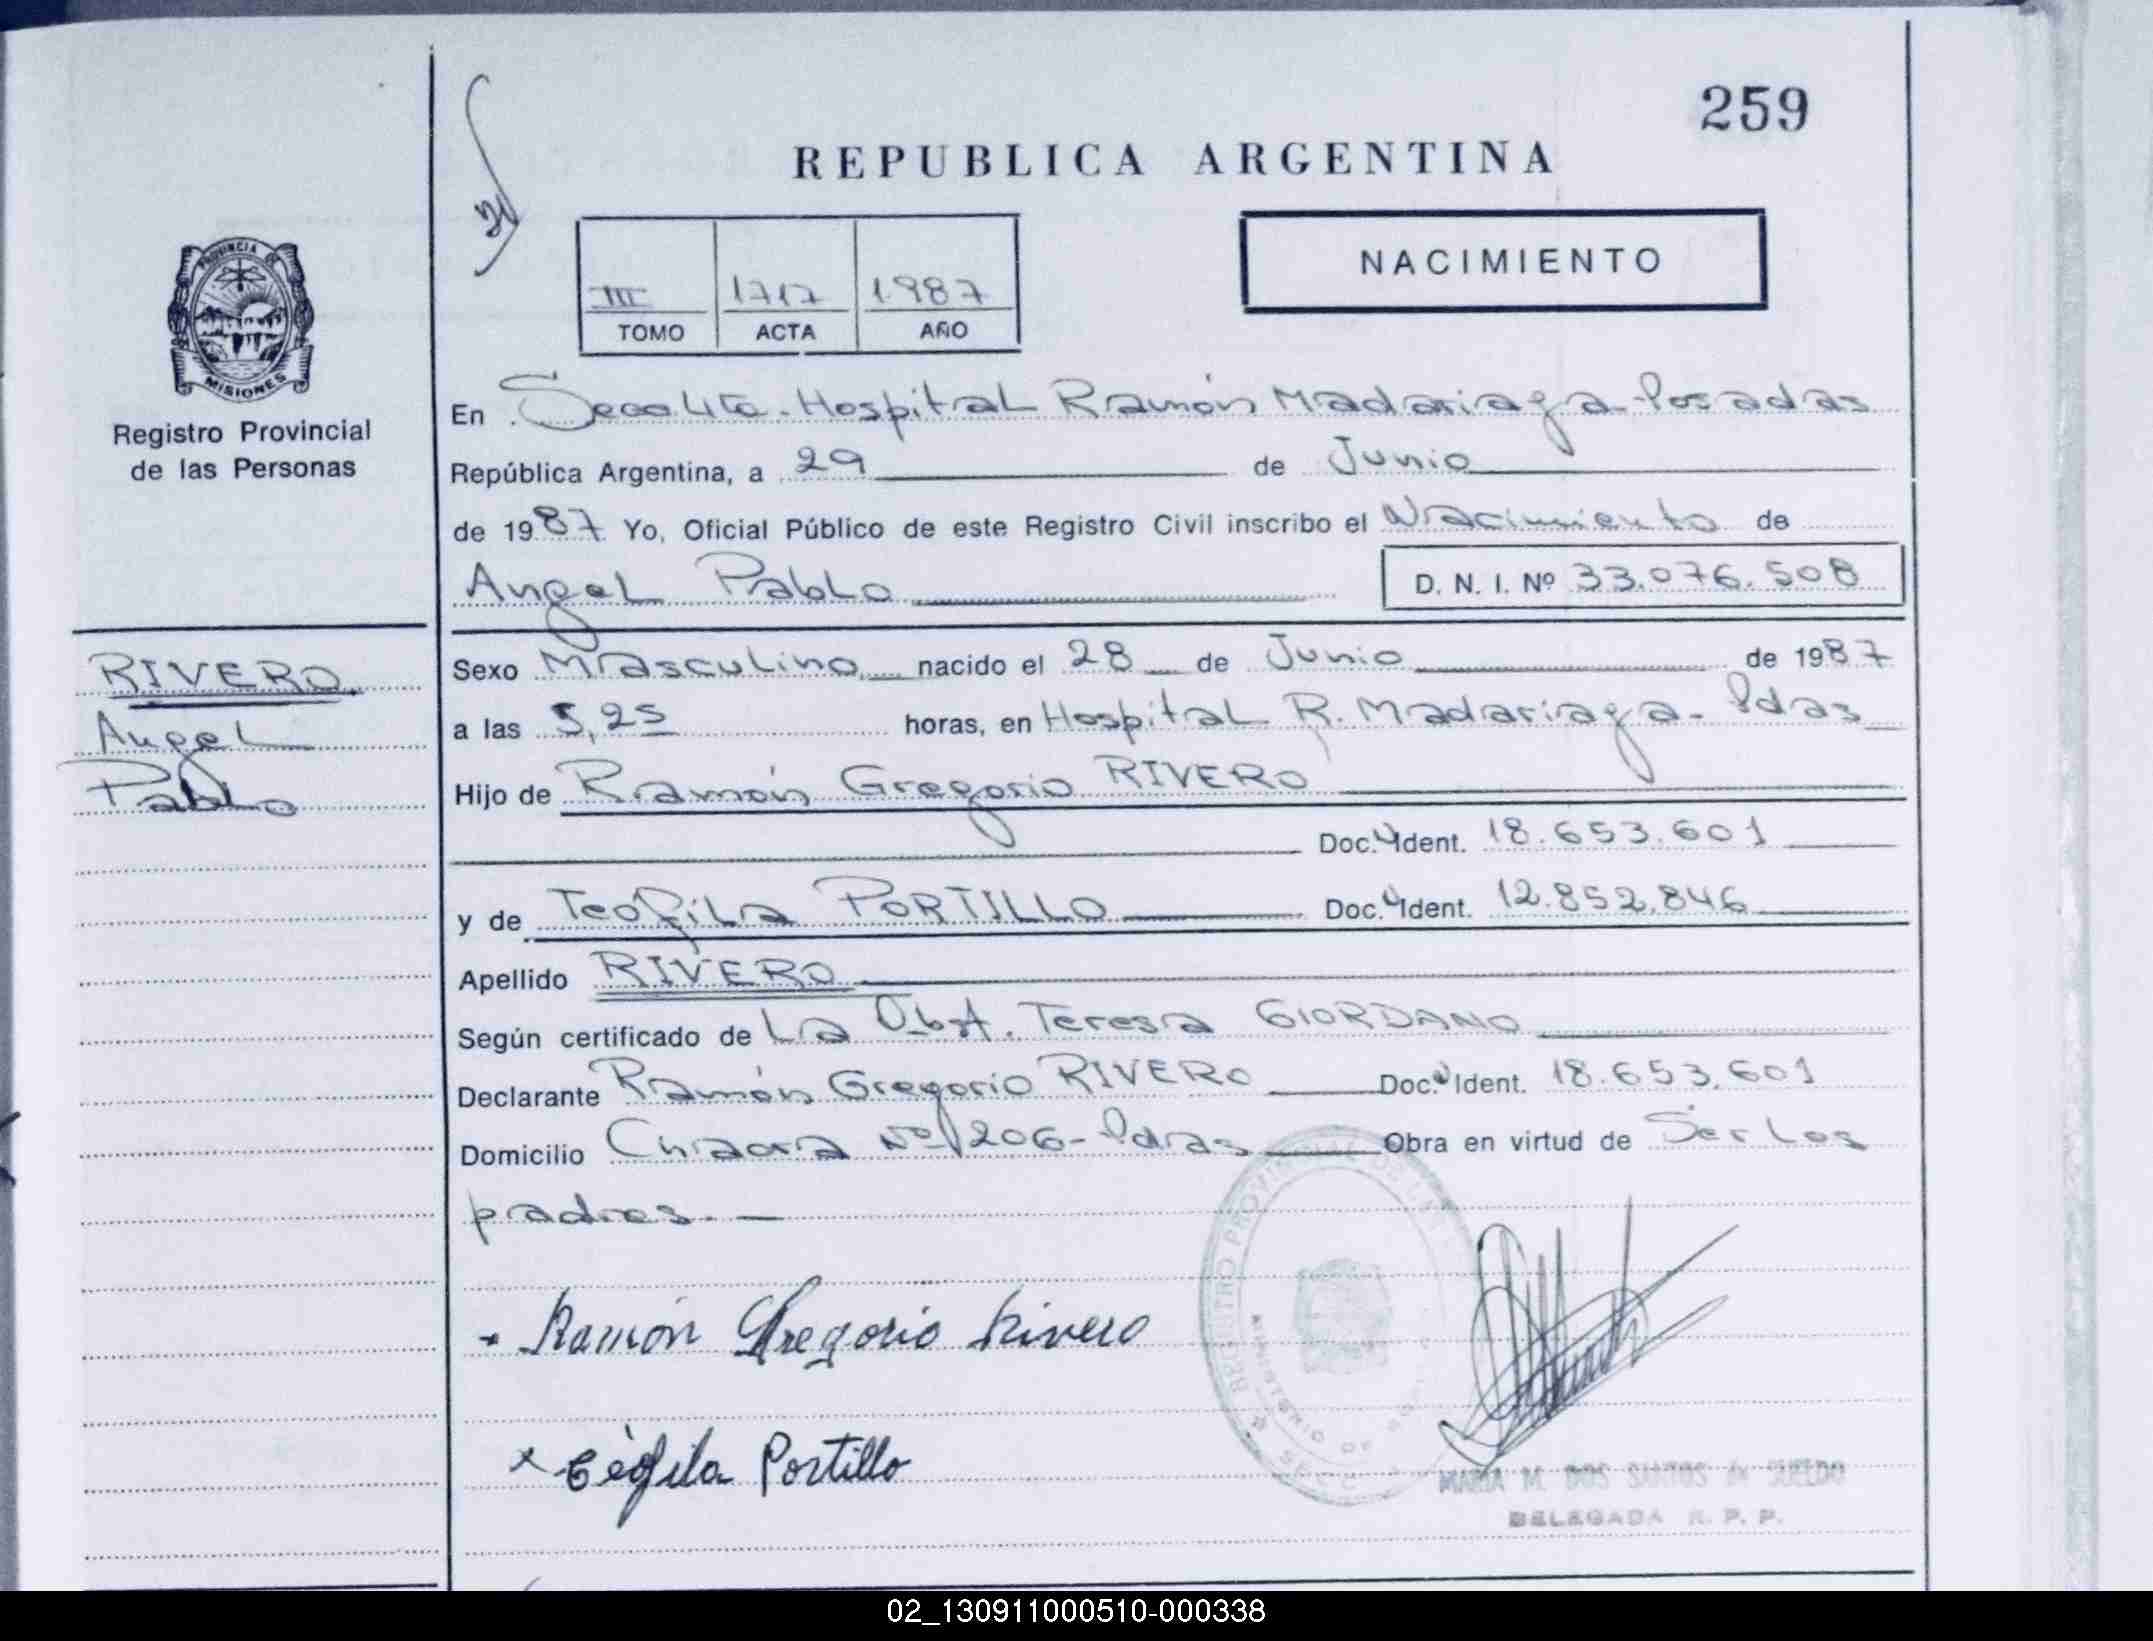 259
REPUBLICA ARGENTINA
NACIMIENTO
III 1717 1987
TOMO ACTA AÑO
PROVINCIA DE
MISIONES
Registro Provincial
de las Personas
En Secc 4ta - Hospital Ramón Madariaga - Posadas
República Argentina, a 29 de Junio
de 1987 Yo, Oficial Público de este Registro Civil inscribo el Nacimiento de
Angel Pablo D. N. I. Nº 33.076.508
RIVERO
Angel
Pablo
Sexo Masculino nacido el 28 de Junio de 1987
a las 5,25 horas, en Hospital R. Madariaga - Pdas
Hijo de Ramón Gregorio RIVERO
Doc. Ident. 18.653.601
y de Teofila PORTILLO Doc. Ident. 12.852.846
Apellido RIVERO
Según certificado de La Obst. Teresa GIORDANO
Declarante Ramón Gregorio RIVERO Doc. Ident. 18.653.601
Domicilio Chacra Nº 206 - Pdas Obra en virtud de Ser los
padres. —
Ramón Gregorio Rivero
x Teófila Portillo
REGISTRO PROVINCIAL DE LAS
MARIA M. DOS SANTOS de SUELDO
DELEGADA R. P. P.
02_130911000510-000338